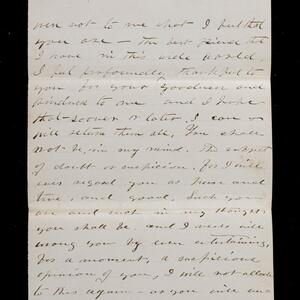 not to me what I feel that
you are — the best friend that
I have in this wide world.
I feel profoundly thankful to
you for your goodness and
kindness to me, and I hope
that sooner or later, I can or
will return them all. You shall
not be, in my mind, the subject
of doubt or suspicion. For I will
ever regard you as true and
true, and good. Such you
are and such in my thoughts
you shall be. and I never will
wrong you by even entertaining,
for a moment, a suspicious
opinion of you, I will not allude
to this again — as you will